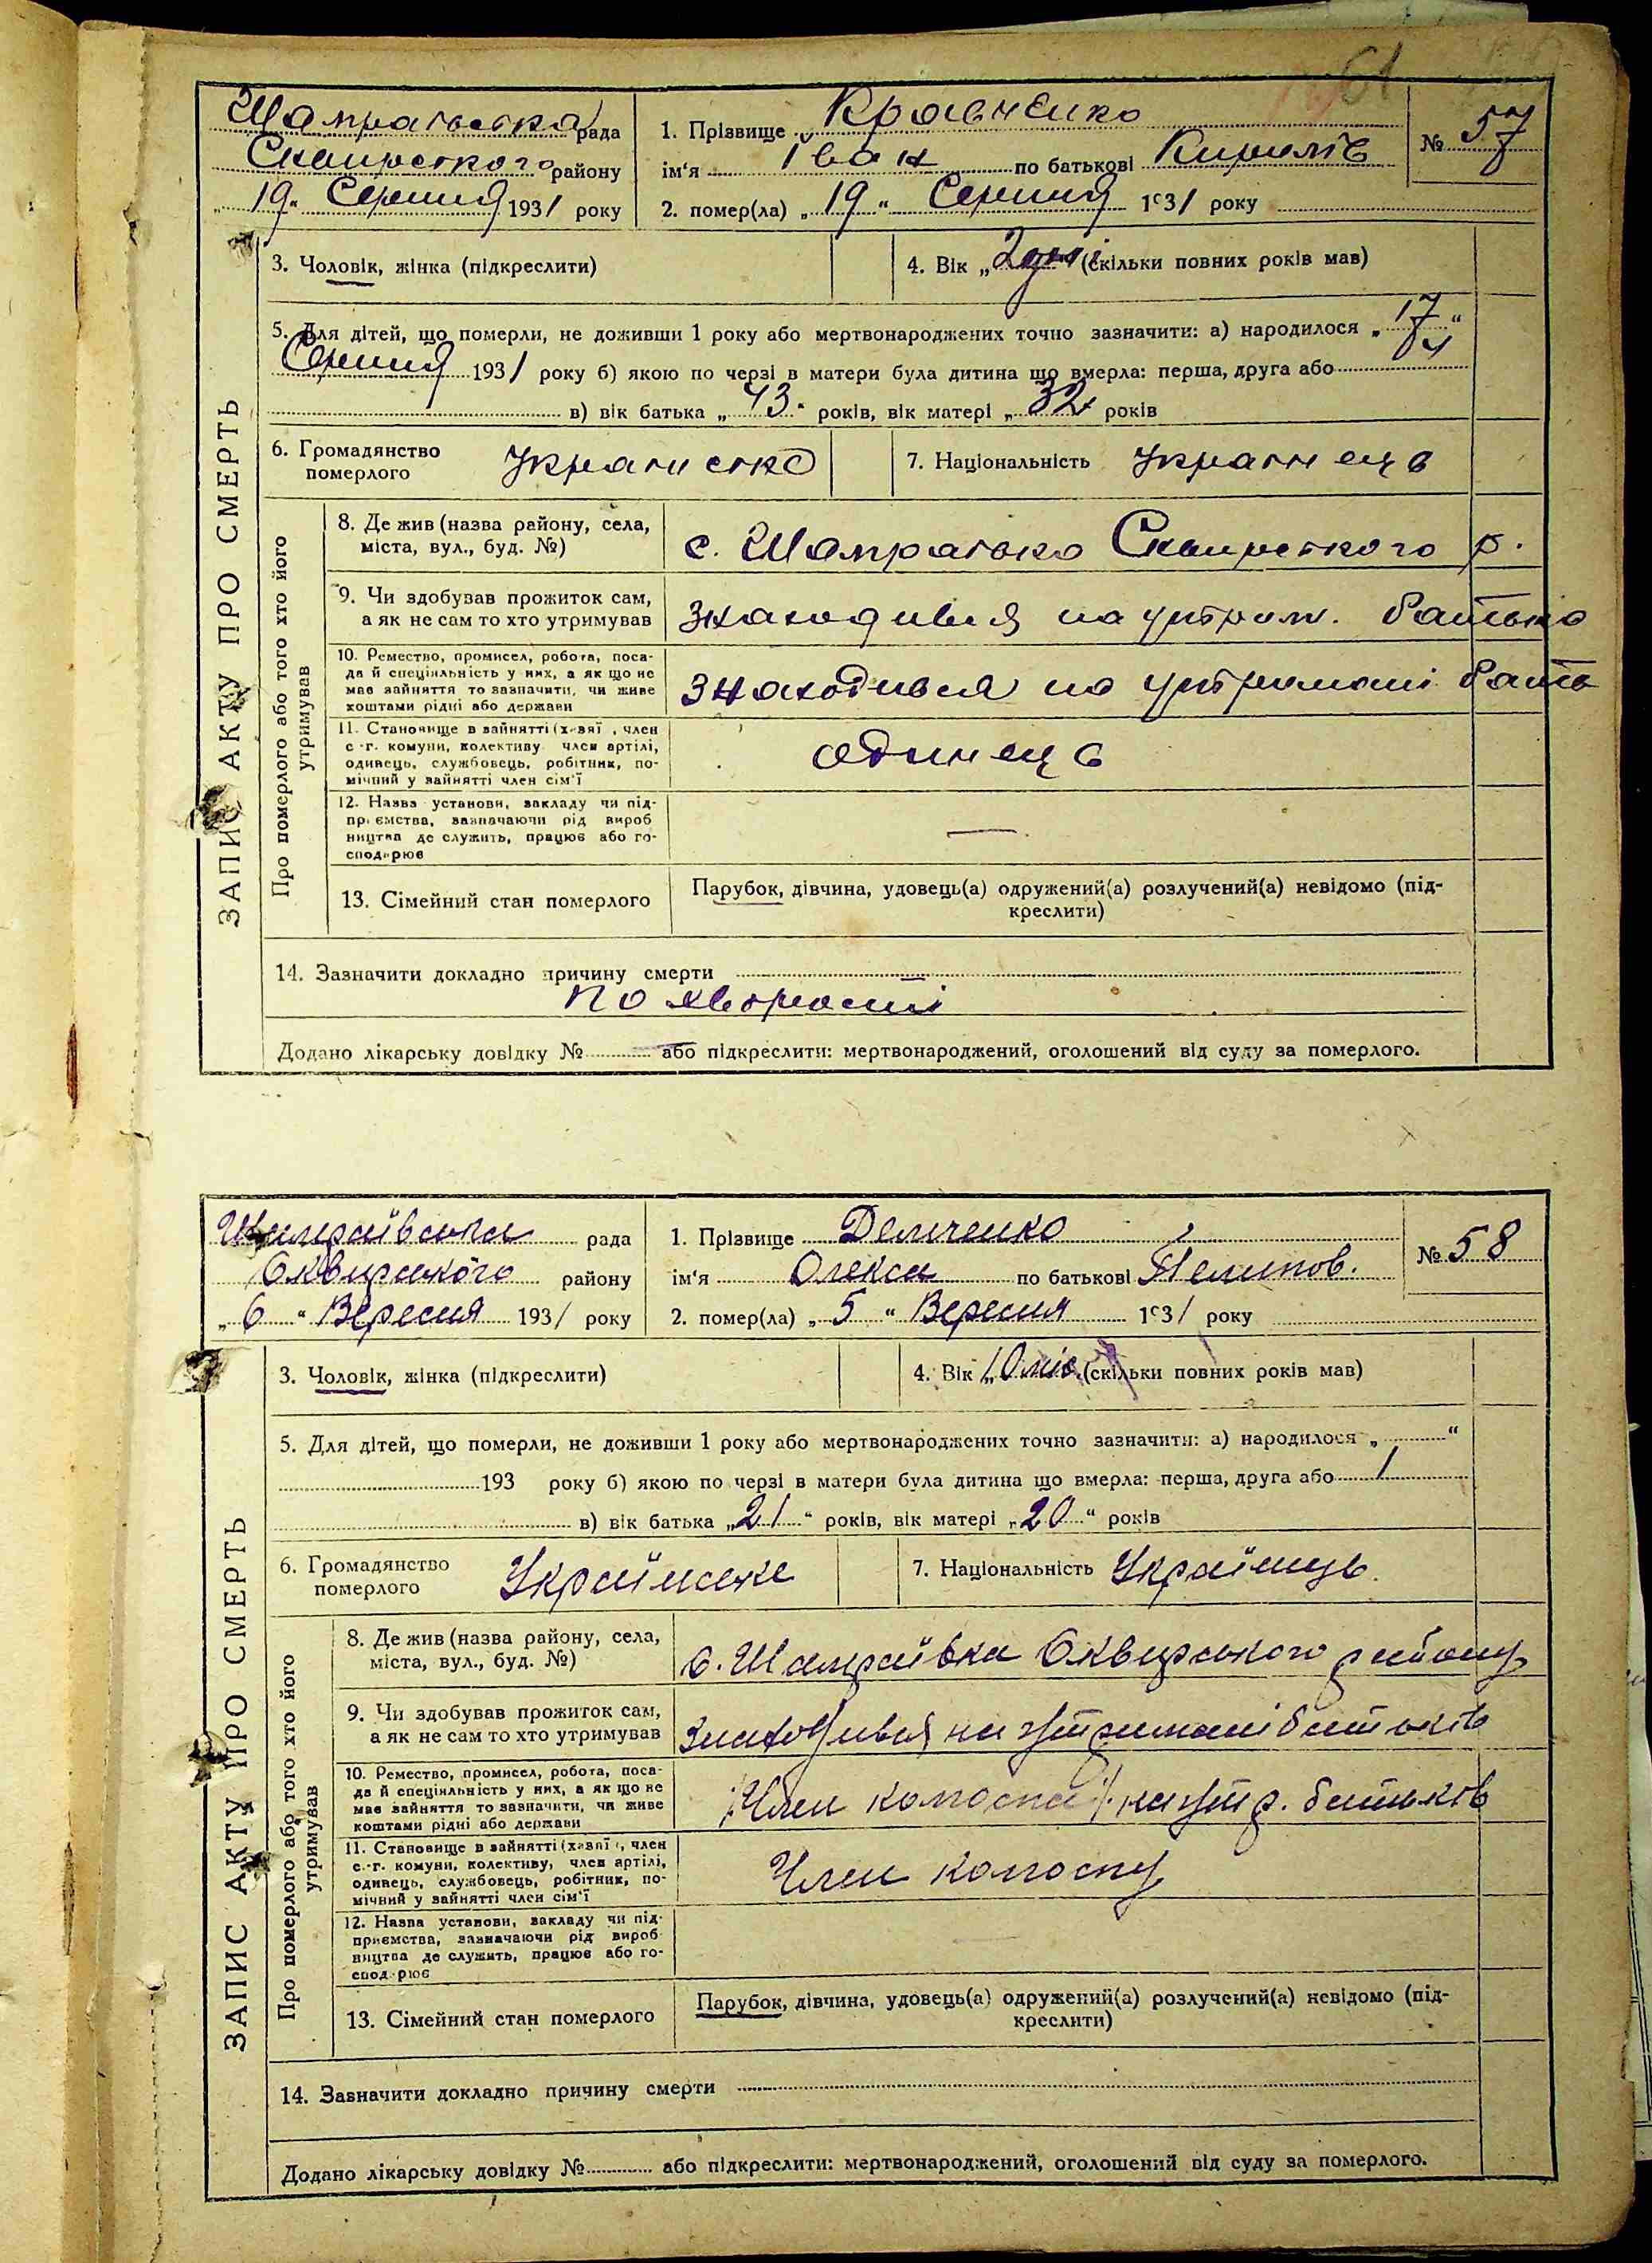 61
Шамраївська рада
Сквирського району
„ 19 “ Серпня 1931 року
1. Прізвище Кравченко
ім‘я Іван по батькові Кирилів
№ 57
2. помер(ла) „ 19 “ Серпня 1931 року
ЗАПИС АКТУ ПРО СМЕРТЬ
3. Чоловік, жінка (підкреслити)
4. Вік „ 2 дні “ (скільки повних років мав)
5. Для дітей, що померли, не доживши 1 року або мертвонароджених точно зазначити: а) народилося „ 17 “
Серпня 1931 року б) якою по черзі в матери була дитина що вмерла: перша, друга або
в) вік батька „ 43 “ років, вік матері „ 32 “ років
6. Громадянство
померлого
7. Національність Українець
Про померлого або того хто його
утримував
8. Де жив (назва району, села,
міста, вул., буд. №)
с. Шамраївка Сквирського р.
9. Чи здобував прожиток сам,
а як не сам то хто утримував
знаходився на утрим. батька
10. Ремество, промисел, робота, поса-
да й спеціяльність у них, а як що не
має зайняття то зазначити, чи живе
коштами рідні або держави
знаходився на утримані бать
11. Становище в зайнятті (хазяї, член
с.-г. комуни, колективу, член артілі,
одинець, службовець, робітник, по-
мічний у зайнятті член сім‘ї
одинець
12. Назва установи, закладу чи під-
приємства, зазначаючи рід вироб
ництва де служить, працює або го-
сподарює
—
13. Сімейний стан померлого
Парубок, дівчина, удовець(а) одружений(а) розлучений(а) невідомо (під-
креслити)
14. Зазначити докладно причину смерти
по хворості
Додано лікарську довідку № або підкреслити: мертвонароджений, оголошений від суду за померлого.
Шамраївська рада
Сквирського району
„ 6 “ Вересня 1931 року
1. Прізвище Демченко
ім‘я Олекса по батькові Пелипов.
№ 58
2. помер(ла) „ 5 “ Вересня 1931 року
ЗАПИС АКТУ ПРО СМЕРТЬ
3. Чоловік, жінка (підкреслити)
4. Вік „ 10 міс. (скільки повних років мав)
5. Для дітей, що померли, не доживши 1 року або мертвонароджених точно зазначити: а) народилося „ “
193 року б) якою по черзі в матери була дитина що вмерла: перша, друга або 1
в) вік батька „ 21 “ років, вік матері „ 20 “ років
6. Громадянство
померлого
Українське
7. Національність Українець.
Про померлого або того хто його
утримував
8. Де жив (назва району, села,
міста, вул., буд. №)
с. Шамраївка Сквирського району
9. Чи здобував прожиток сам,
а як не сам то хто утримував
Знаходився на утримані батьків
10. Ремество, промисел, робота, поса-
да й спеціяльність у них, а як що не
має зайняття то зазначити, чи живе
коштами рідні або держави
Член колгоспу на утр. батьків
11. Становище в зайнятті (хазяї, член
с.-г. комуни, колективу, член артілі,
одинець, службовець, робітник, по-
мічний у зайнятті член сім‘ї
Член колгоспу
12. Назва установи, закладу чи під-
приємства, зазначаючи рід вироб
ництва де служить, працює або го-
сподарює
13. Сімейний стан померлого
Парубок, дівчина, удовець(а) одружений(а) розлучений(а) невідомо (під-
креслити)
14. Зазначити докладно причину смерти
Додано лікарську довідку № або підкреслити: мертвонароджений, оголошений від суду за померлого.